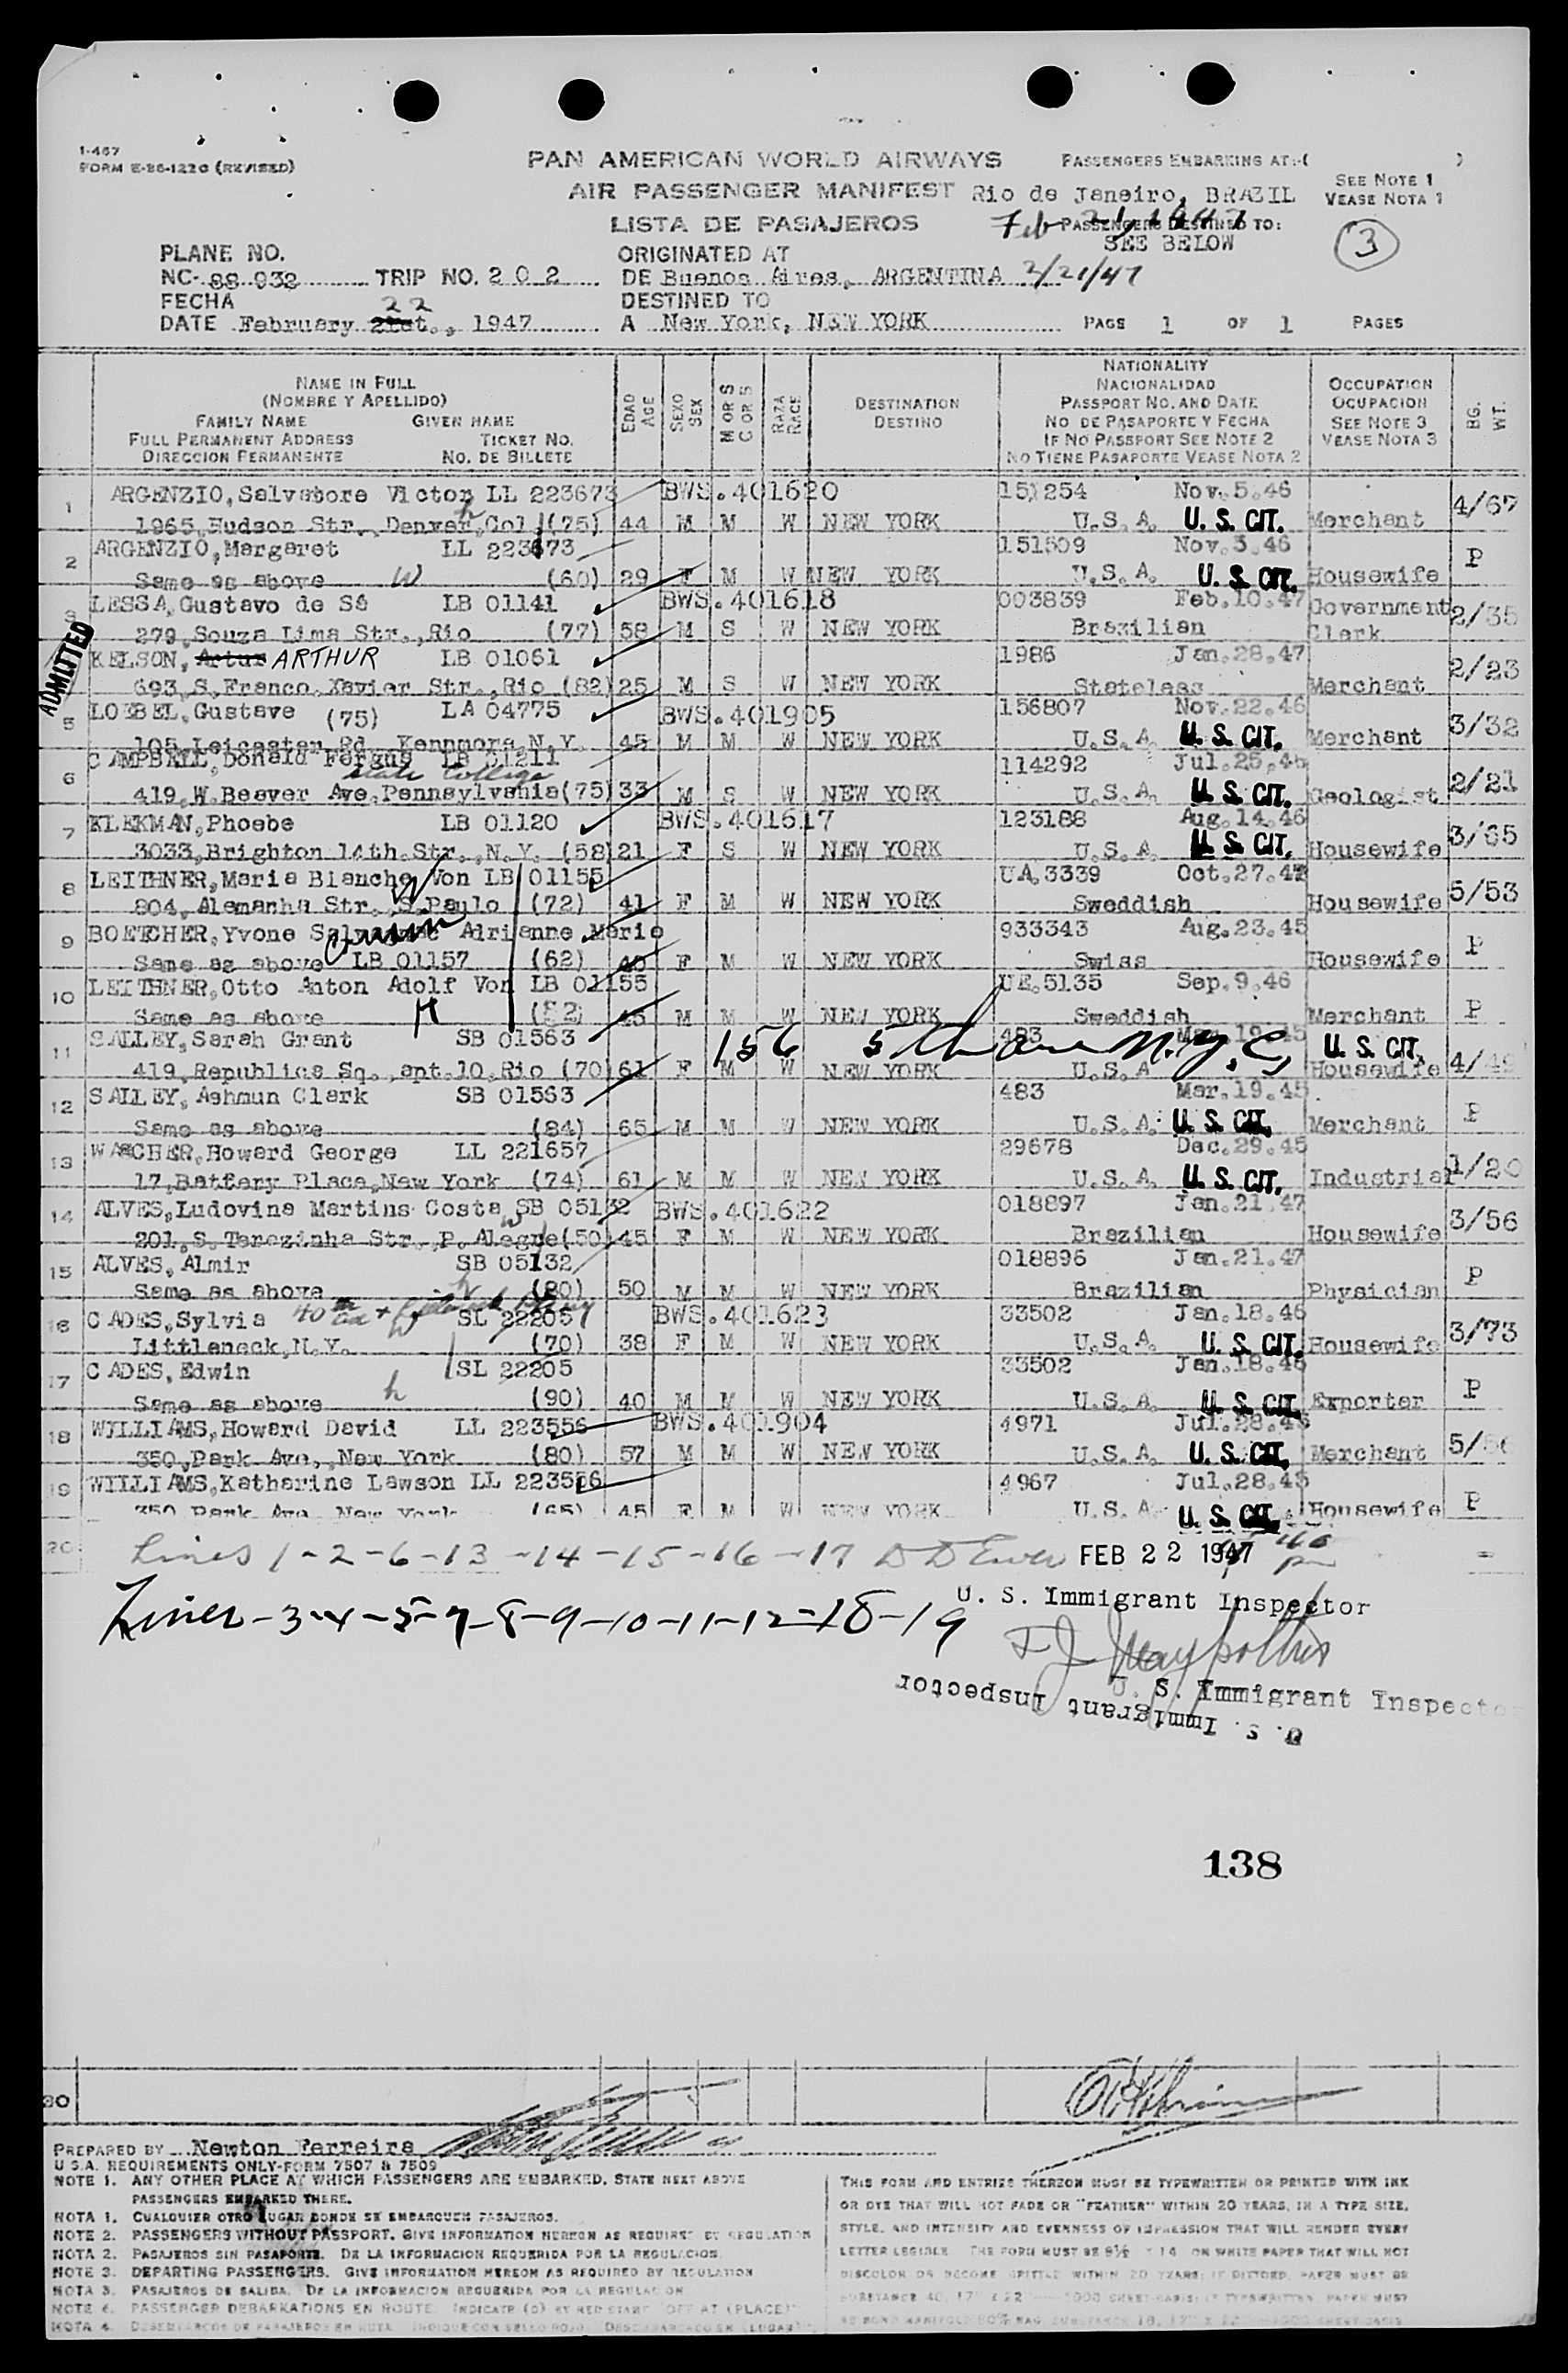 1-467
FORM E-86-122C (REVISED)
PAN AMERICAN WORLD AIRWAYS
AIR PASSENGER MANIFEST
LISTA DE PASAJEROS
PASSENGERS EMBARKING AT:-( )
Rio de Janeiro, BRAZIL
Feb 21, 1947
PASSENGERS DESTINED TO:
SEE BELOW
SEE NOTE 1
VEASE NOTA 1
3
PLANE NO.
NC- 88 932 TRIP NO. 202
FECHA
22
DATE February 21st., 1947
ORIGINATED AT
DE Buenos Aires, ARGENTINA 2/21/47
DESTINED TO
A New York, NEW YORK
PAGE 1 OF 1 PAGES
NAME IN FULL
(NOMBRE Y APELLIDO)
FAMILY NAME GIVEN NAME
FULL PERMANENT ADDRESS TICKET NO.
DIRECCION PERMANENTE NO. DE BILLETE
EDAD AGE
SEXO SEX
M OR S C OR S
RAZA RACE
DESTINATION
DESTINO
NATIONALITY
NACIONALIDAD
PASSPORT NO. AND DATE
NO DE PASAPORTE Y FECHA
IF NO PASSPORT SEE NOTE 2
NO TIENE PASAPORTE VEASE NOTA 2
OCCUPATION
OCUPACION
SEE NOTE 3
VEASE NOTA 3
BG. WT.
1 ARGENZIO, Salvatore Victor LL 223673 BWS.401620 151254 Nov.5.46
h
1965, Hudson Str., Denver, Col. (75) 44 M M W NEW YORK U.S.A. U. S. CIT. Merchant 4/67
2 ARGENZIO, Margaret LL 223673 151509 Nov.5.46
Same as above W (60) 29 F M W NEW YORK U.S.A. U. S. CIT. Housewife P
3 LESSA, Gustavo de Sá LB 01141 BWS.401618 003839 Feb.10.47
279, Souza Lima Str., Rio (77) 58 M S W NEW YORK Brazilian Government Clerk 2/35
ADMITTED
KELSON, Artur ARTHUR LB 01061 1986 Jan.28.47
693, S, Franco Xavier Str., Rio (82) 25 M S W NEW YORK Stateless Merchant 2/23
5 LOEBEL, Gustave (75) LA 04775 BWS.401905 156807 Nov.22.46
105, Leicester Rd Kennmore, N.Y. 45 M M W NEW YORK U.S.A. U. S. CIT. Merchant 3/32
6 CAMPBELL, Donald Fergus LB 01211 114292 Jul.25.46
State College
419, W. Beaver Ave. Pennsylvania (75) 33 M S W NEW YORK U.S.A. U. S. CIT. Geologist 2/21
7 KLEKMAN, Phoebe LB 01120 BWS.401617 123188 Aug.14.46
3033, Brighton 14th. Str., N.Y. (58) 21 F S W NEW YORK U.S.A. U. S. CIT. Housewife 3/65
8 LEITHNER, Maria Blanche Von LB 01155 UA.3339 Oct.27.42
W
804, Alemanha Str., S. Paulo (72) 41 F M W NEW YORK Sweddish Housewife 5/53
9 BOETCHER, Yvone Adrianne Marie 933343 Aug.23.45
Same as above LB 01157 (62) 40 F M W NEW YORK Swiss Housewife P
10 LEITHNER, Otto Anton Adolf Von LB 01155 UE.5135 Sep.9.46
Same as above H (82) 45 M M W NEW YORK Sweddish Merchant P
11 SALLEY, Sarah Grant SB 01563 483 Mar.19.45
156 5th ave N.Y.C. U. S. CIT.
419, Republica Sq., apt. 10, Rio (70) 61 F M W NEW YORK U.S.A. Housewife 4/49
12 SALLEY, Ashmun Clark SB 01563 483 Mar.19.45
Same as above (84) 65 M M W NEW YORK U.S.A. U. S. CIT. Merchant P
13 WASCHER, Howard George LL 221657 29678 Dec.29.45
17, Battery Place, New York (74) 61 M M W NEW YORK U.S.A. U. S. CIT. Industrial 1/20
14 ALVES, Ludovina Martins Costa SB 05132 BWS.401622 018897 Jan.21.47
w
201, S. Terezinha Str., P. Alegre (50) 45 F M W NEW YORK Brazilian Housewife 3/56
15 ALVES, Almir SB 05132 018896 Jan.21.47
Same as above h (80) 50 M M W NEW YORK Brazilian Physician P
16 CADES, Sylvia SL 22205 BWS.401623 33502 Jan.18.46
Littleneck, N.Y. W (70) 38 F M W NEW YORK U.S.A. U. S. CIT. Housewife 3/73
17 CADES, Edwin SL 22205 33502 Jan.18.46
Same as above h (90) 40 M M W NEW YORK U.S.A. U. S. CIT. Exporter P
18 WILLIAMS, Howard David LL 223556 BWS.401904 4971 Jul.28.45
350, Park Ave., New York (80) 57 M M W NEW YORK U.S.A. U. S. CIT. Merchant
19 WILLIAMS, Katharine Lawson LL 223556 4967 Jul.28.45
350 Park Ave. New York (65) 45 F M W NEW YORK U.S.A. U. S. CIT. Housewife P
20 Lines 1-2-6-13-14-15-16-17 FEB 22 1947
U. S. Immigrant Inspector
Lines-3-4-5-7-8-9-10-11-12-18-19
U. S. Immigrant Inspector
U. S. Immigrant Inspector
138
30
PREPARED BY Newton Ferreira
U.S.A. REQUIREMENTS ONLY-FORM 7507 & 7509
NOTE 1. ANY OTHER PLACE AT WHICH PASSENGERS ARE EMBARKED. STATE NEXT ABOVE
PASSENGERS EMBARKED THERE.
NOTA 1. CUALQUIER OTRO LUGAR DONDE SE EMBARQUEN PASAJEROS.
NOTE 2. PASSENGERS WITHOUT PASSPORT. GIVE INFORMATION HEREON AS REQUIRED BY REGULATION
NOTA 2. PASAJEROS SIN PASAPORTE. DE LA INFORMACION REQUERIDA POR LA REGULACION.
NOTE 3. DEPARTING PASSENGERS. GIVE INFORMATION HEREON AS REQUIRED BY REGULATION
NOTA 3. PASAJEROS DE SALIDA. DE LA INFORMACION REQUERIDA POR LA REGULACION
NOTE 4. PASSENGER DEBARKATIONS EN ROUTE. INDICATE (D) BY RED STAMP "OFF AT (PLACE)"
THIS FORM AND ENTRIES THEREON MUST BE TYPEWRITTEN OR PRINTED WITH INK
OR DYE THAT WILL NOT FADE OR "FEATHER" WITHIN 20 YEARS, IN A TYPE SIZE,
STYLE, AND INTENSITY AND EVENNESS OF IMPRESSION THAT WILL RENDER EVERY
LETTER LEGIBLE. THE FORM MUST BE 8½ X 14 ON WHITE PAPER THAT WILL NOT
DISCOLOR OR BECOME BRITTLE WITHIN 20 YEARS; IF DITTOED, PAPER MUST BE